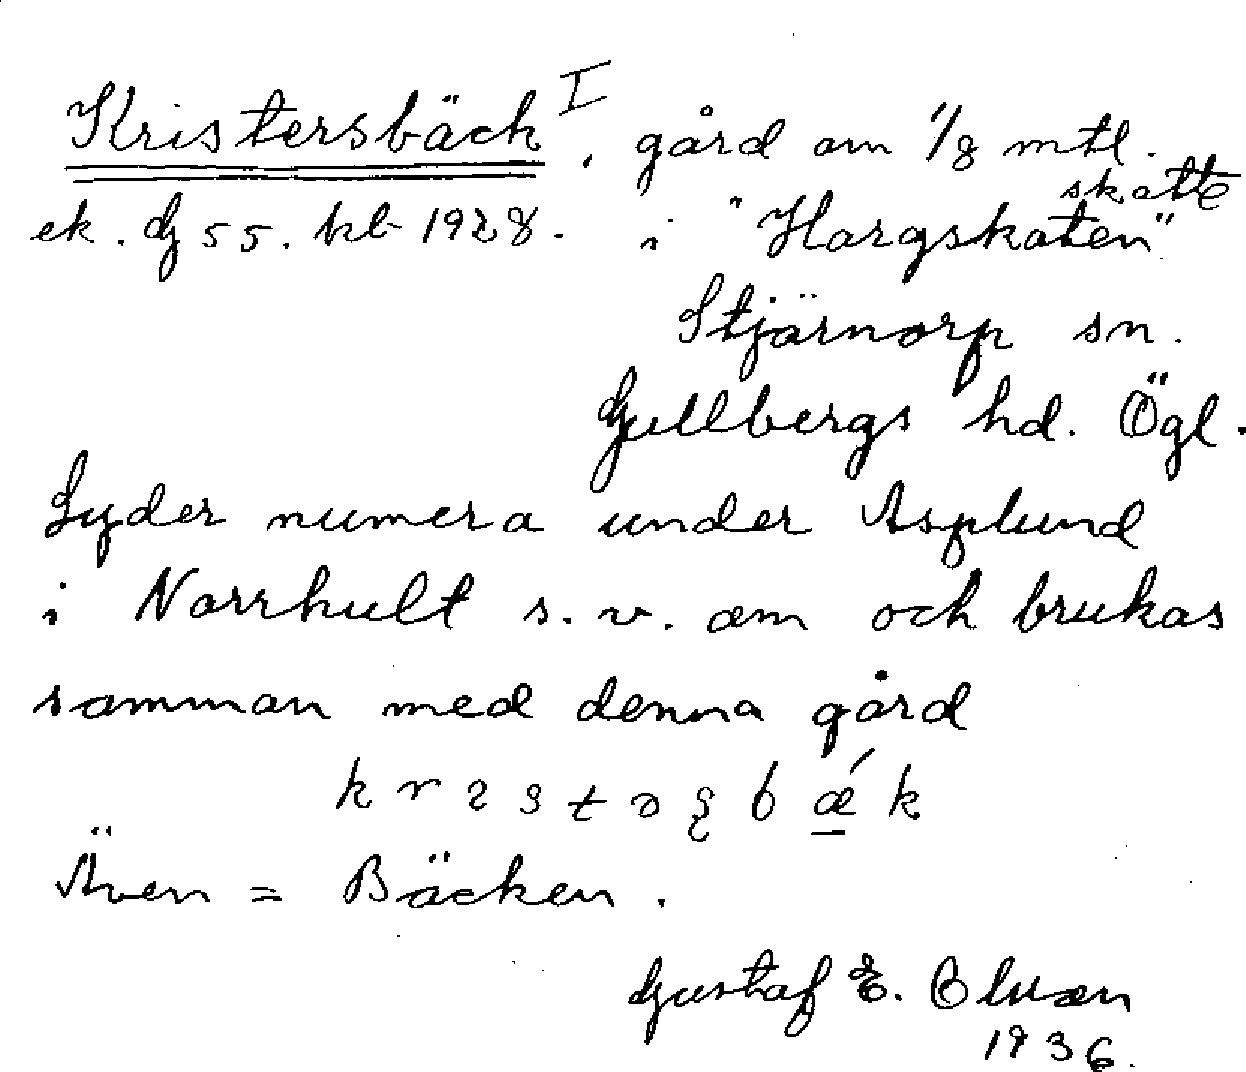 Kristersbäck I, gård om 1/8 mtl. skatte
ek. G 55. kb 1928. i "Hargskaten"
Stjärnorp sn.
Gullbergs hd. Ögl.
Lyder numera under Asplund
i Norrhult s. v. om och brukas
samman med denna gård
b ǽ k
Även = Bäcken.
Gustaf E. Olsson
1936.